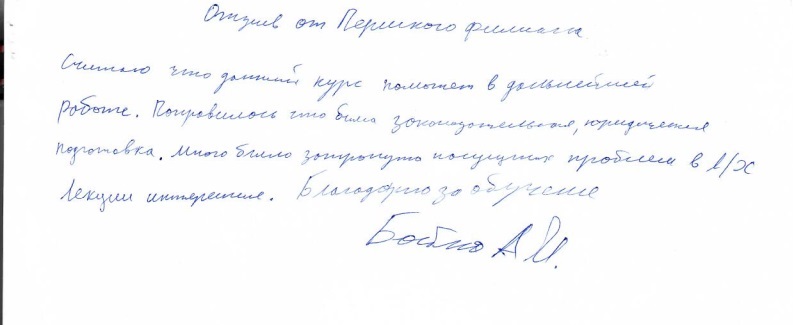 Отзыв от Пермского филиала
Считаю что данный курс поможет в дальнейшей
работе. Понравилось что была законодательная, юридическая
подготовка. Много было затронуто насущных проблем в л/х
Лекции интересные. Благодарю за обучение
А И.